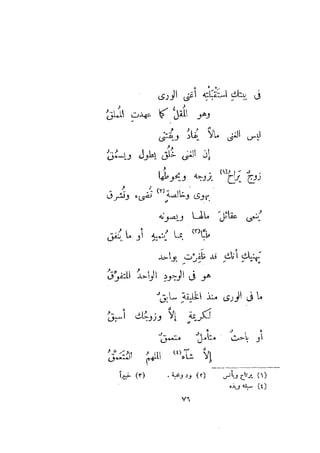 فى بيتك استقبلته أغنى الورى
وهو المقلّ كما عهدت المملقُ
ليس الغنى مالاً يفادُ ويقتنى
إن الغنى خُلُق يطول ويسمقُ
زوجٌ يَراحُ (١) بزوجه ويحوطها
بهوى وخالصةٍ (٢) تضىء وتشرق
يُنمى عقائلَ مالها ويصونه
طَبًّا (٣) بما يُنميهِ أو ما يُنفق
يهنيكِ أنكِ قد ظفرتِ بواحد
هو فى الوجودِ الواحدُ المتفوّقُ
ما فى الورى منذ الخليقةِ سابقٌ
لكريمةٍ إلاّ وزوجك أسبقُ
أو باحثٌ متأملٌ متعمقٌ
إلاّ شآه (٤) الملهمُ المتعمّقُ
(١) يرتاح ويأنس (٢) ود ورغبة . (٣) خبيراً
(٤) سبقه وبذه
٧٦